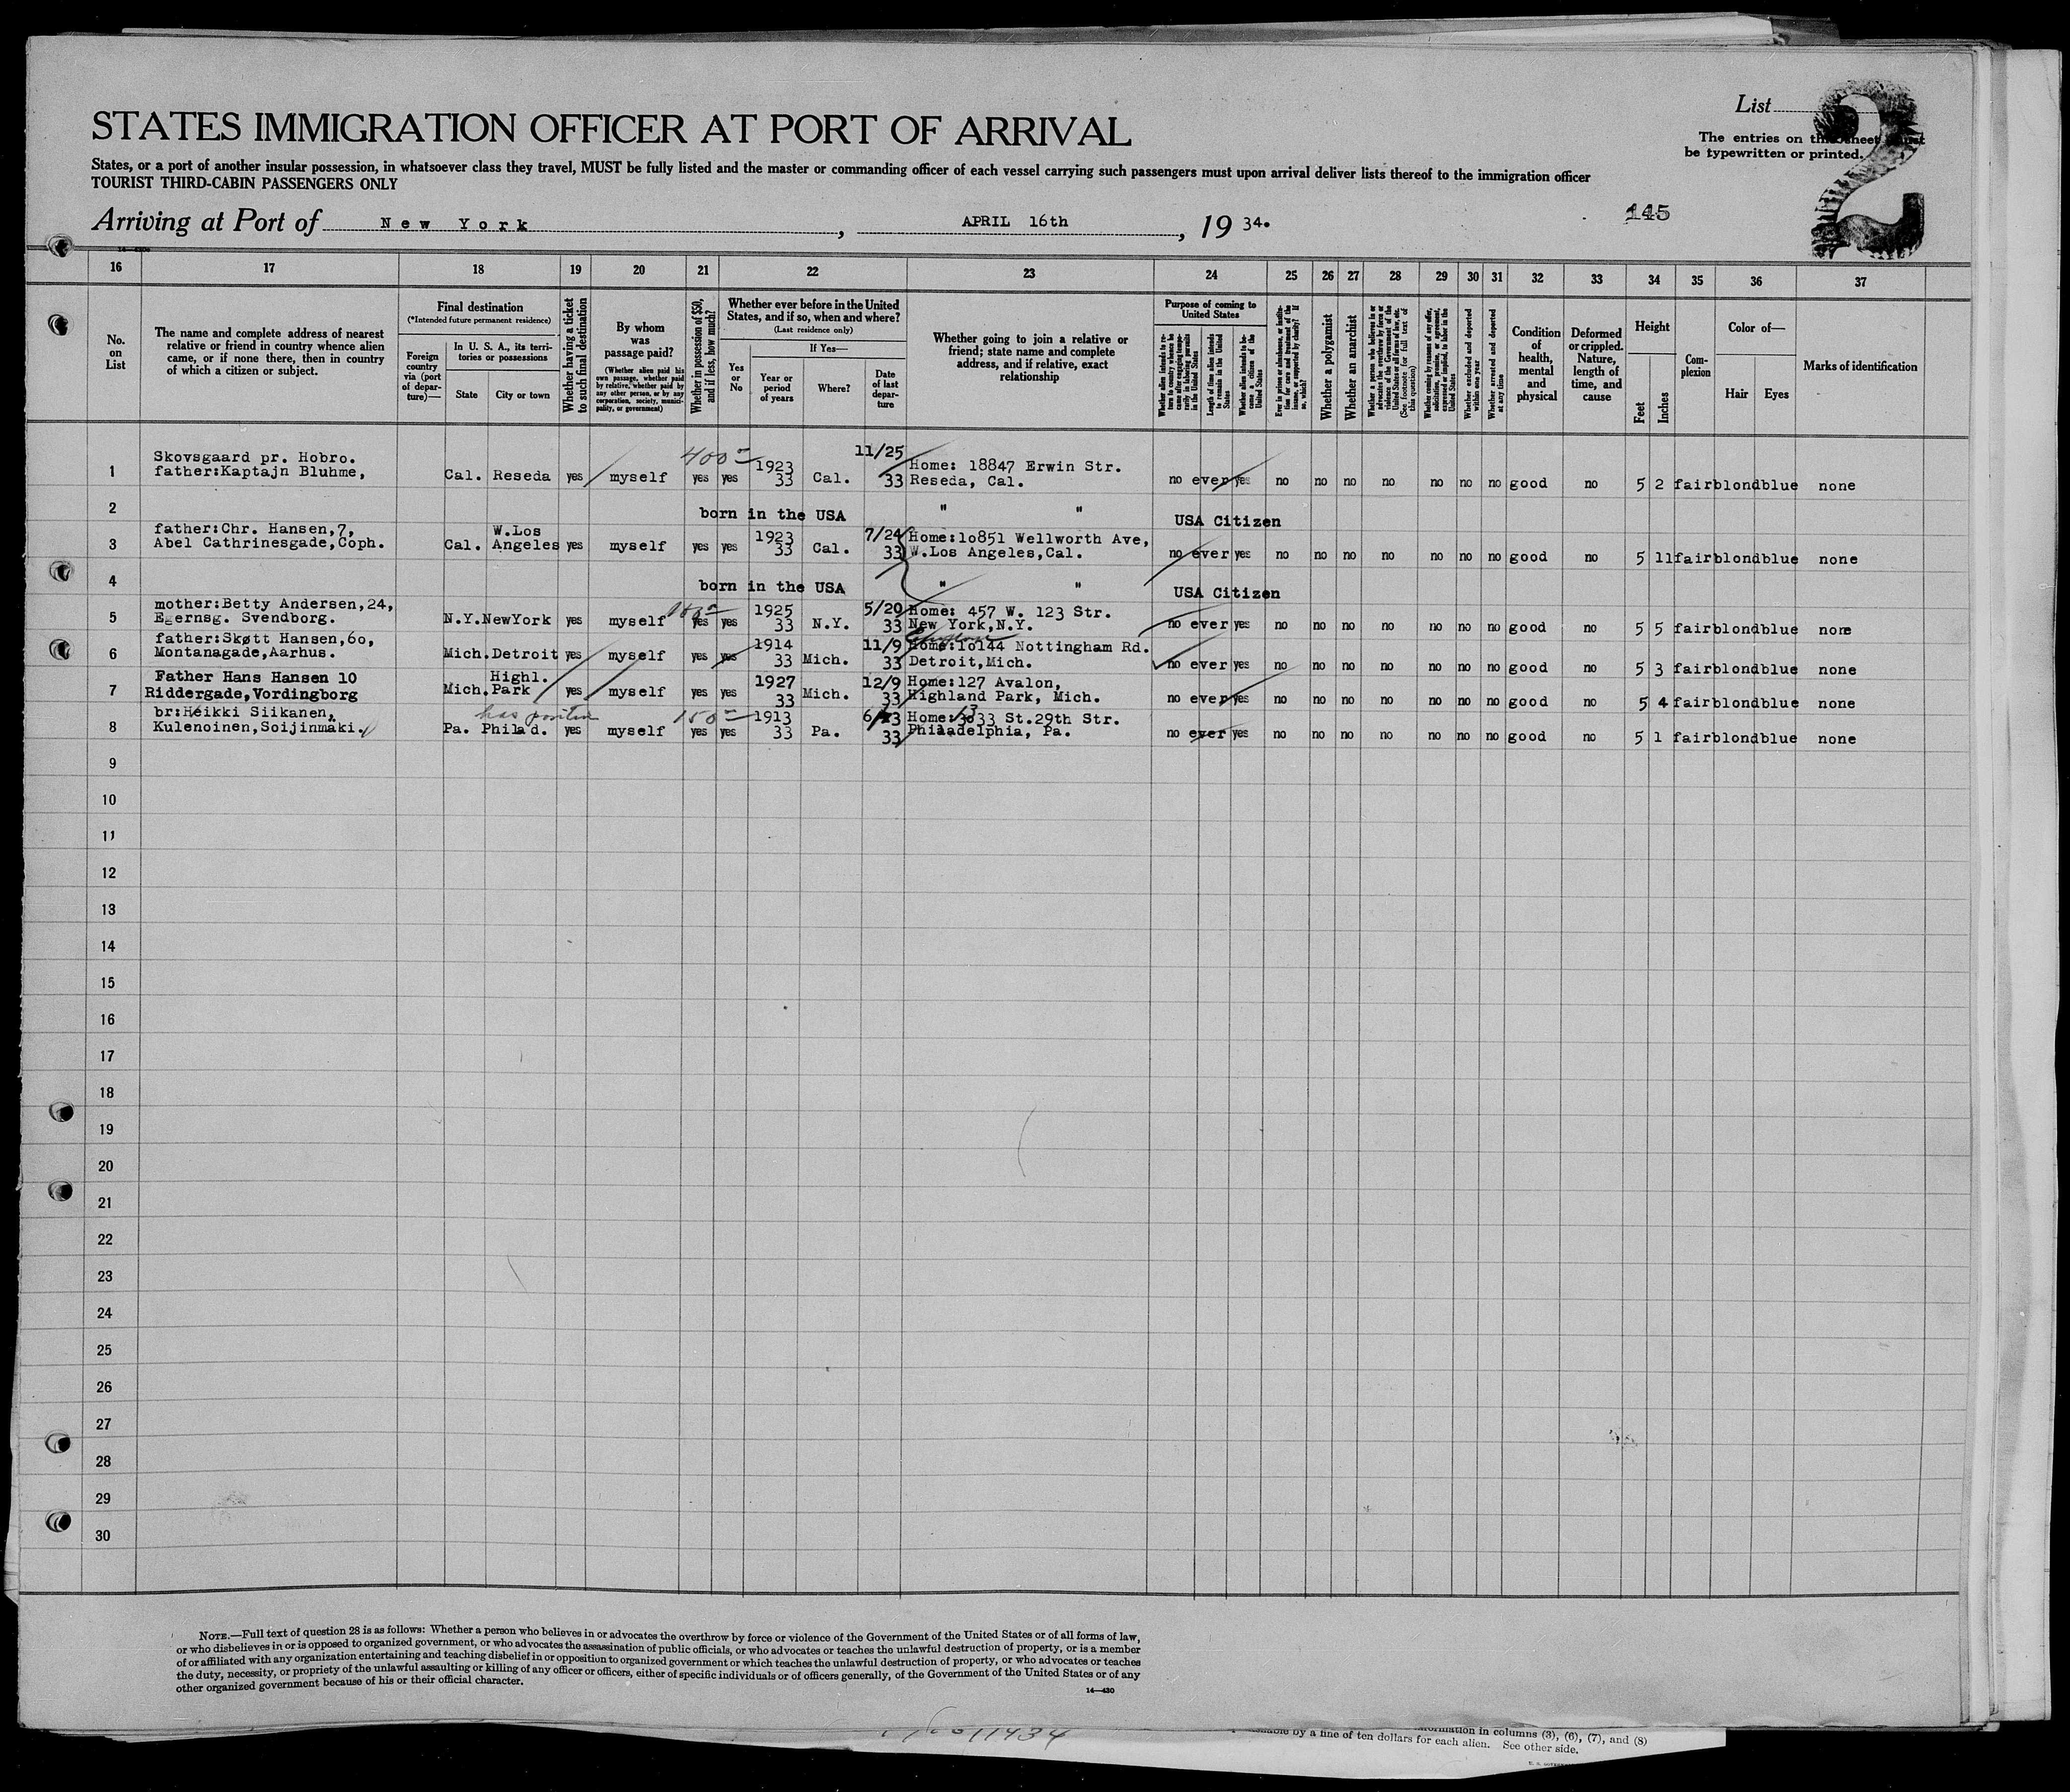 List
STATES IMMIGRATION OFFICER AT PORT OF ARRIVAL
2
The entries on this sheet must
be typewritten or printed.
States, or a port of another insular possession, in whatsoever class they travel, MUST be fully listed and the master or commanding officer of each vessel carrying such passengers must upon arrival deliver lists thereof to the immigration officer
TOURIST THIRD-CABIN PASSENGERS ONLY
Arriving at Port of New York, APRIL 16th, 19 34.
145
16 17 18 19 20 21 22 23 24 25 26 27 28 29 30 31 32 33 34 35 36 37
No. on List
The name and complete address of nearest relative or friend in country whence alien came, or if none there, then in country of which a citizen or subject.
Final destination
(*Intended future permanent residence)
Foreign country via (port of departure)—
In U. S. A., its territories or possessions
State
City or town
Whether having a ticket to such final destination
By whom was passage paid?
(Whether alien paid his own passage, whether paid by relative, whether paid by any other person, or by any corporation, society, municipality, or government)
Whether in possession of $50, and if less, how much?
Whether ever before in the United States, and if so, when and where?
(Last residence only)
Yes or No
If Yes—
Year or period of years
Where?
Date of last departure
Whether going to join a relative or friend; state name and complete address, and if relative, exact relationship
Purpose of coming to United States
Whether alien intends to return to country whence he came after engaging temporarily in laboring pursuits in the United States
Length of time alien intends to remain in the United States
Whether alien intends to become a citizen of the United States
Ever in prison or almshouse, or institution for care and treatment of the insane, or supported by charity? If so, which?
Whether a polygamist
Whether an anarchist
Whether a person who believes in or advocates the overthrow by force or violence of the Government of the United States or all forms of law, etc. (See footnote for full text of this question)
Whether coming by reason of any offer, solicitation, promise, or agreement, expressed or implied, to labor in the United States
Whether excluded and deported within one year
Whether arrested and deported at any time
Condition of health, mental and physical
Deformed or crippled. Nature, length of time, and cause
Height
Feet
Inches
Complexion
Color of—
Hair
Eyes
Marks of identification
1 Skovsgaard pr. Hobro. father:Kaptajn Bluhme, Cal. Reseda yes myself 400 yes yes 1923 33 Cal. 11/25 33 Home: 18847 Erwin Str. Reseda, Cal. no ever yes no no no no no no no good no 5 2 fair blond blue none
2 born in the USA " " USA Citizen
3 father:Chr. Hansen,7, Abel Cathrinesgade,Coph. Cal. W.Los Angeles yes myself yes yes 1923 33 Cal. 7/24 33 Home:10851 Wellworth Ave, W.Los Angeles,Cal. no ever yes no no no no no no no good no 5 11 fair blond blue none
4 born in the USA " " USA Citizen
5 mother:Betty Andersen,24, Egernsg. Svendborg. N.Y. NewYork yes myself yes yes 1925 33 N.Y. 5/20 33 Home: 457 W. 123 Str. New York,N.Y. no ever yes no no no no no no no good no 5 5 fair blond blue none
6 father:Skøtt Hansen,60, Montanagade,Aarhus. Mich. Detroit yes myself yes yes 1914 33 Mich. 11/9 33 Home:10144 Nottingham Rd. Detroit,Mich. no ever yes no no no no no no no good no 5 3 fair blond blue none
7 Father Hans Hansen 10 Riddergade,Vordingborg Mich. Highl. Park yes myself yes yes 1927 33 Mich. 12/9 33 Home:127 Avalon, Highland Park, Mich. no ever yes no no no no no no no good no 5 4 fair blond blue none
8 br:Heikki Siikanen, Kulenoinen,Soijinmäki. Pa. Philad. yes myself 150 yes yes 1913 33 Pa. 33 Home: 33 St.29th Str. Philadelphia, Pa. no ever yes no no no no no no no good no 5 1 fair blond blue none
9
10
11
12
13
14
15
16
17
18
19
20
21
22
23
24
25
26
27
28
29
30
NOTE.—Full text of question 28 is as follows: Whether a person who believes in or advocates the overthrow by force or violence of the Government of the United States or of all forms of law,
or who disbelieves in or is opposed to organized government, or who advocates the assassination of public officials, or who advocates or teaches the unlawful destruction of property, or is a member
of or affiliated with any organization entertaining and teaching disbelief in or opposition to organized government or which teaches the unlawful destruction of property, or who advocates or teaches
the duty, necessity, or propriety of the unlawful assaulting or killing of any officer or officers, either of specific individuals or of officers generally, of the Government of the United States or of any
other organized government because of his or their official character.
14—430
information in columns (3), (6), (7), and (8)
by a fine of ten dollars for each alien. See other side.